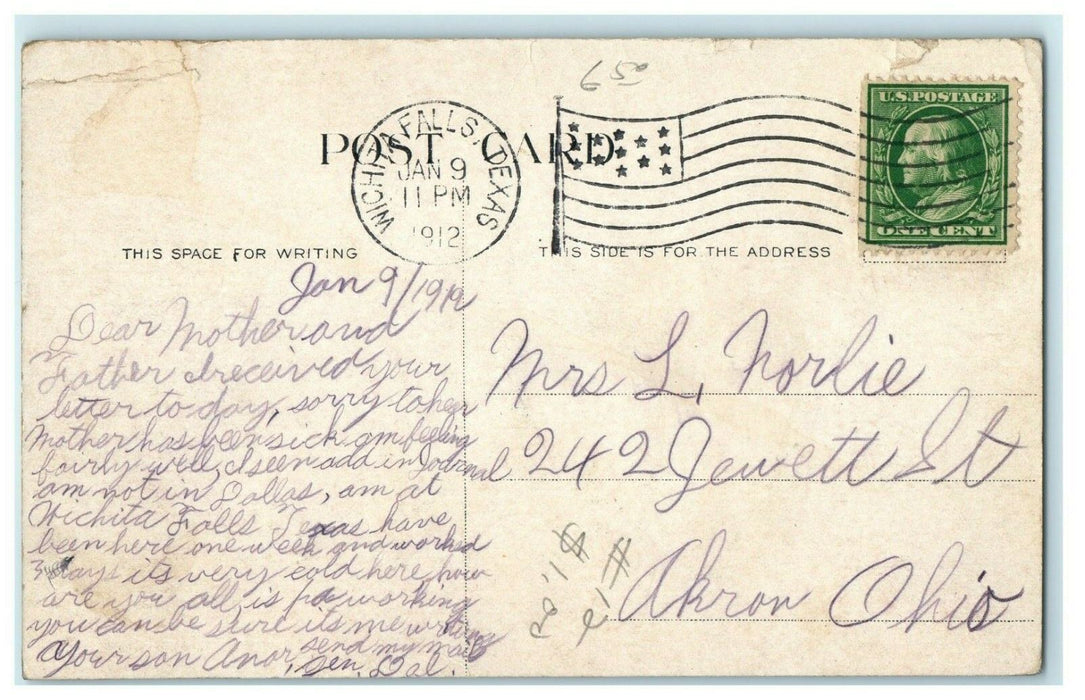 59
POST CARD
WICHITA FALLS, TEXAS
JAN 9
11 PM
1912
U.S. POSTAGE
ONE CENT
THIS SPACE FOR WRITING
THIS SIDE IS FOR THE ADDRESS
Jan 9/1912
Dear Mother and
Father I received your
letter to day, sorry to hear
Mother has been sick am feeling
fairly well, I seen add in Jodrnal
am not in Dallas, am at
Wichita Falls Texas have
been here one week and worked
3 days its very cold here how
are you all, is pa working
you can be sure its me writing
send my mail
your son Anor, Gen. Dal.
Mrs L. Norlie
242 Jewett St
Akron Ohio